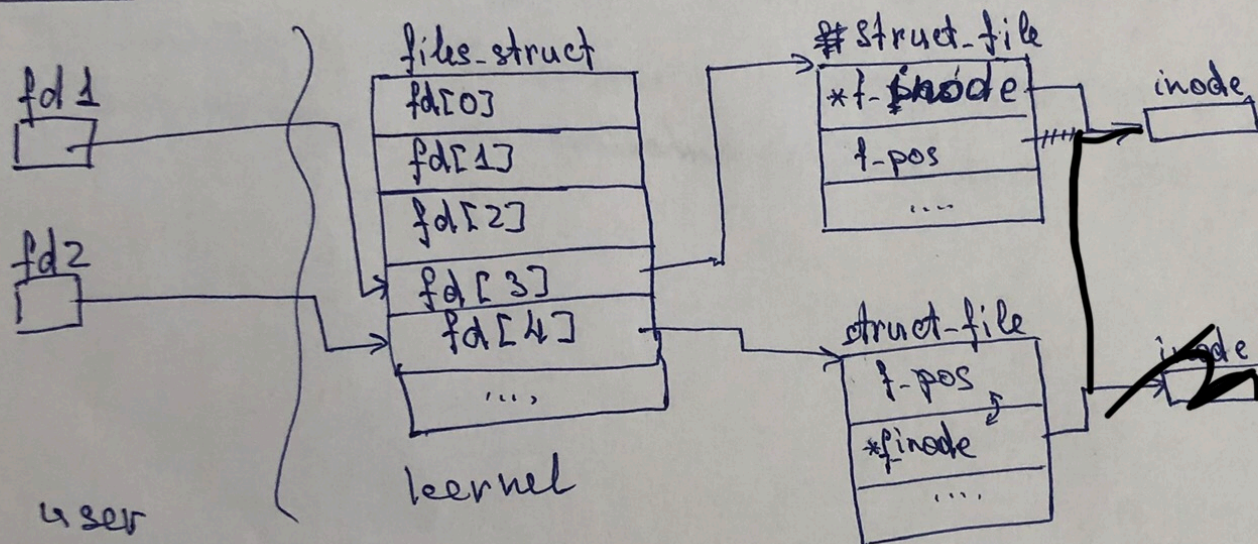 fd1
fd2
user
files_struct
fd[0]
fd[1]
fd[2]
fd[3]
fd[4]
....
kernel
struct_file
*f_inode
f_pos
....
inode
struct_file
f_pos
*f_inode
....
inode